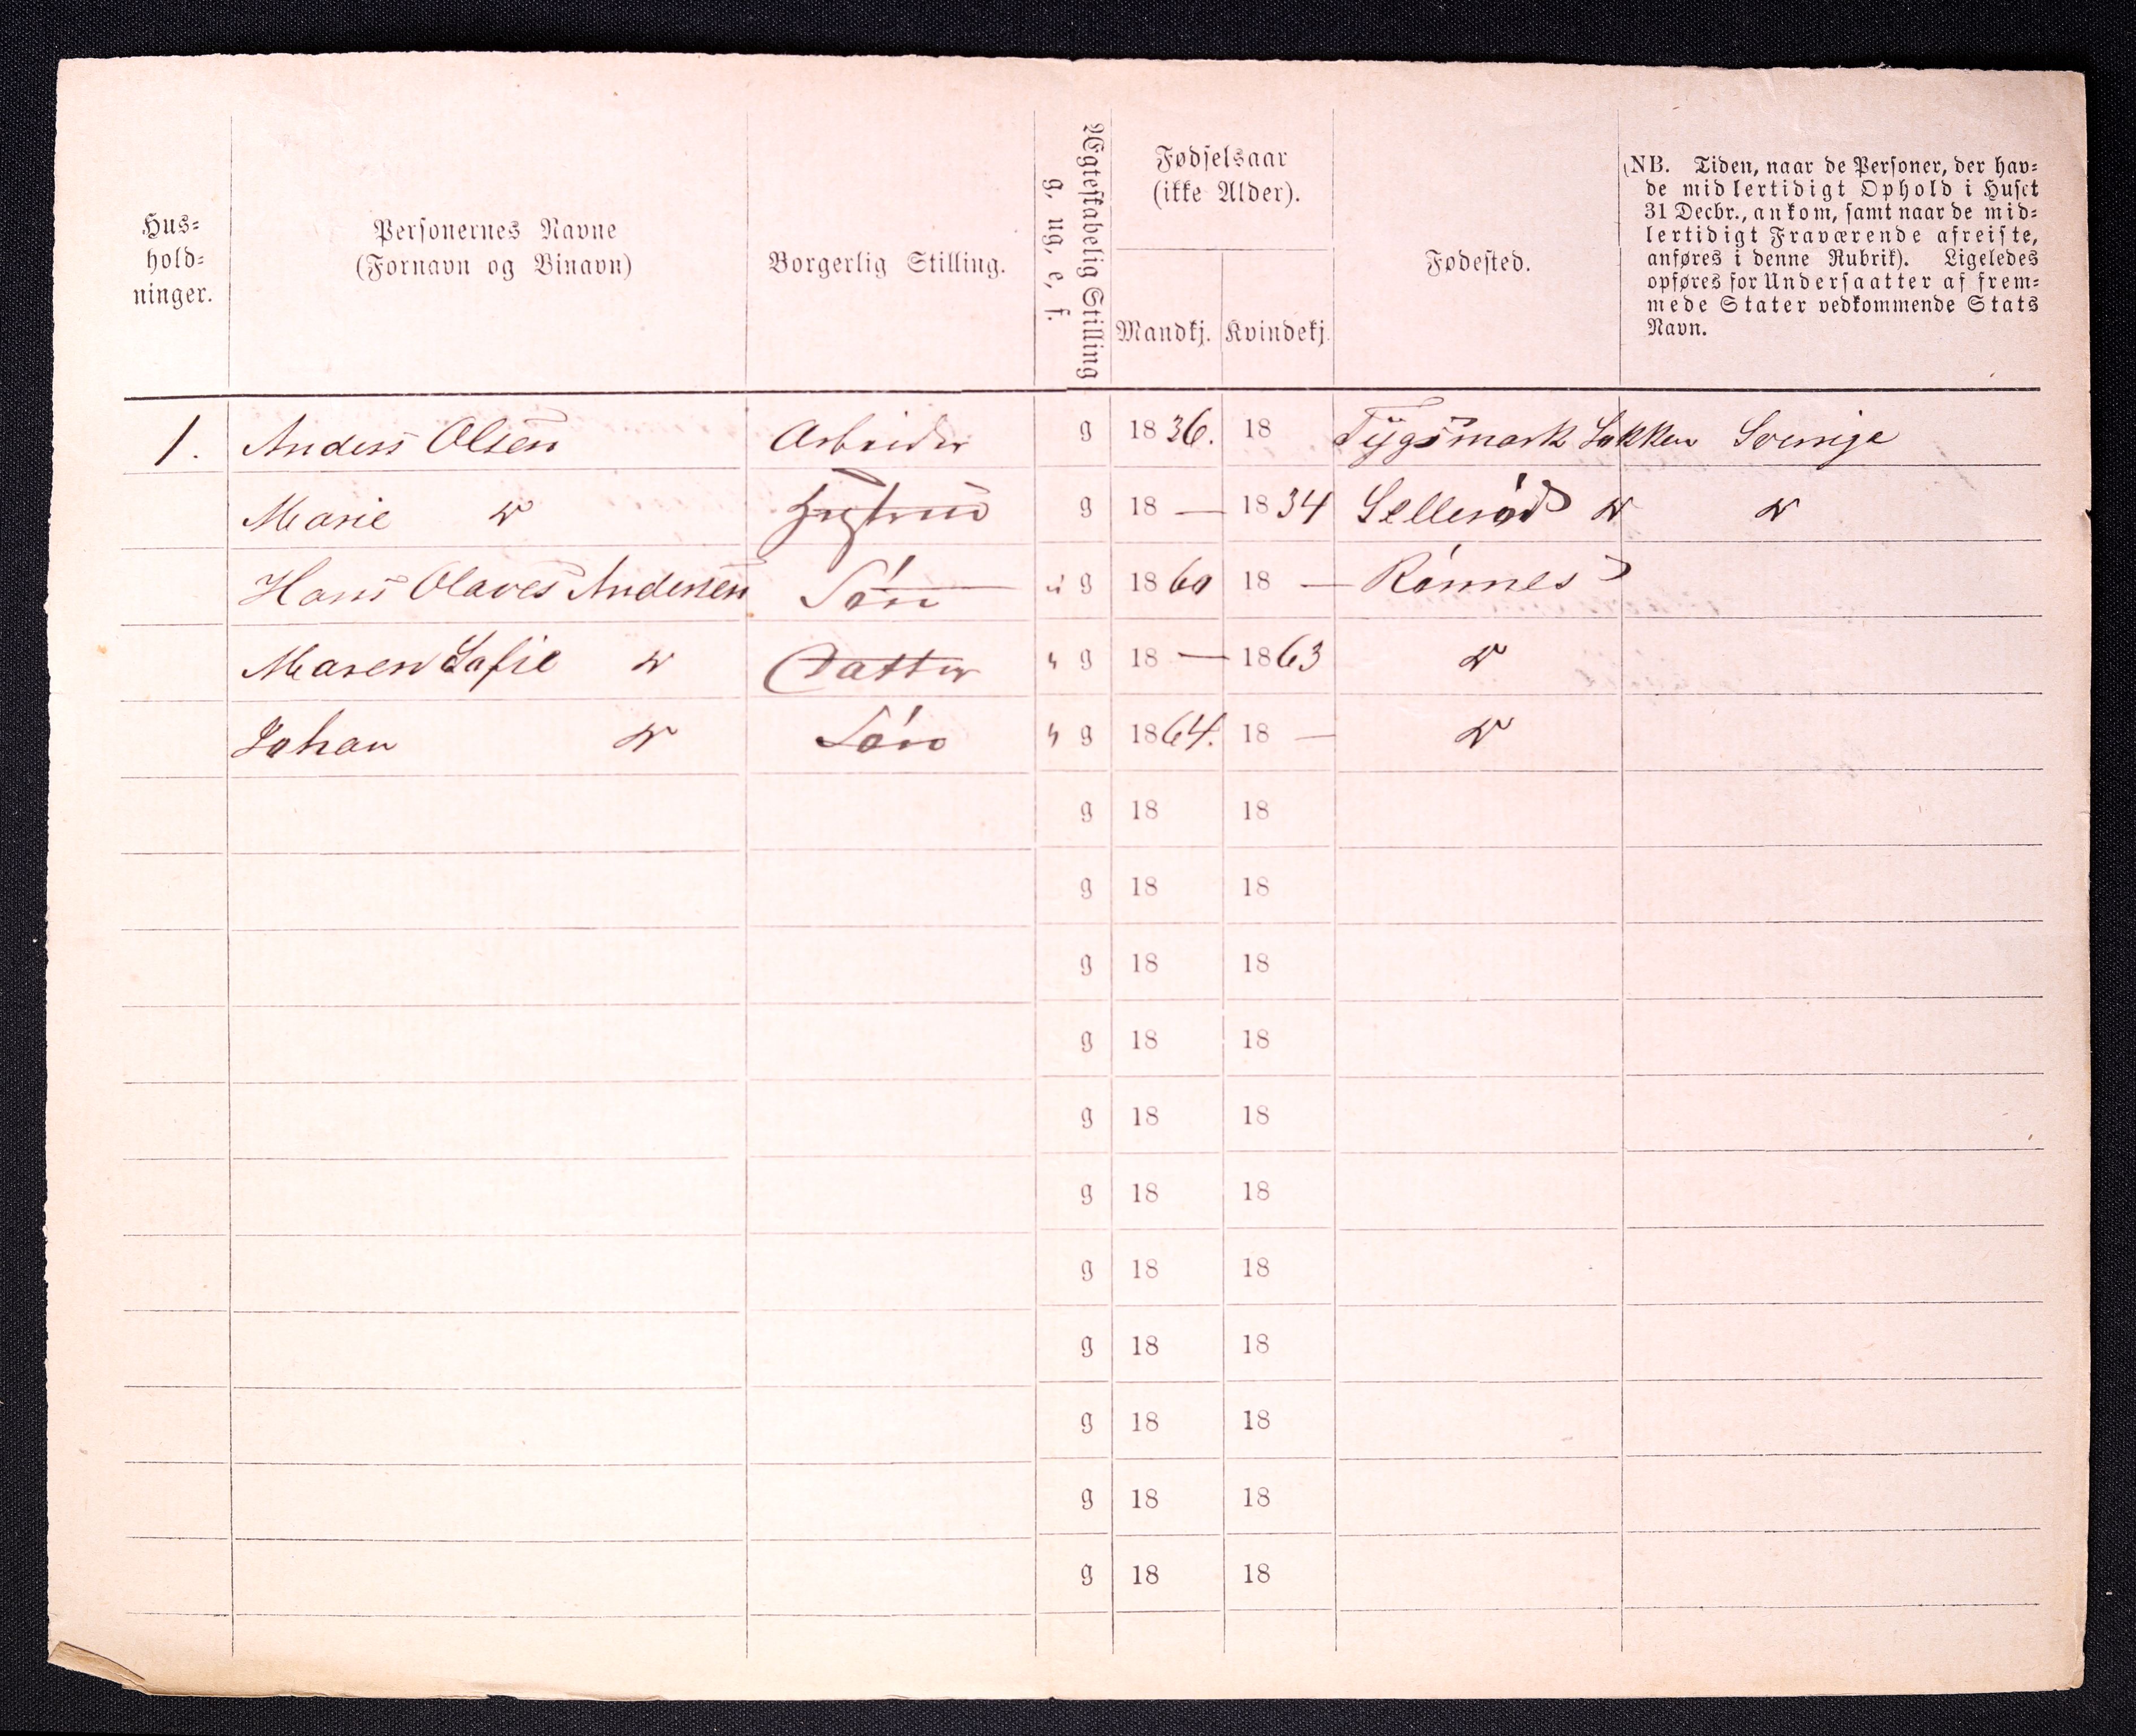 Hus-
hold-
ninger.
Personernes Navne
(Fornavn og Binavn)
Borgerlig Stilling.
Ægteskabelig Stilling
g, ug, e, f.
Fødselsaar
(ikke Alder).
Mandkj. Kvindekj.
Fødested.
(NB. Tiden, naar de Personer, der hav-
de midlertidigt Ophold i Huset
31 Decbr., ankom, samt naar de mid-
lertidigt Fraværende afreiste,
anføres i denne Rubrik). Ligeledes
opføres for Undersaatter af frem-
mede Stater vedkommende Stats
Navn.
1. Anders Olsen Arbeider g 1836. 18 Sokken Sverige
Marie g 18 — 1834
Hans Olaves Andersen Sön u g 1860 18 — Rönnes
Maren Sofie Datter " g 18 — 1863
Johan Sön " g 1864. 18 —
g 18 18
g 18 18
g 18 18
g 18 18
g 18 18
g 18 18
g 18 18
g 18 18
g 18 18
g 18 18
g 18 18